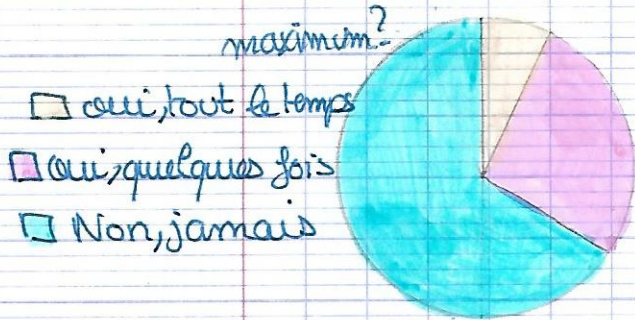 maximum?
oui, tout le temps
oui, quelques fois
Non, jamais